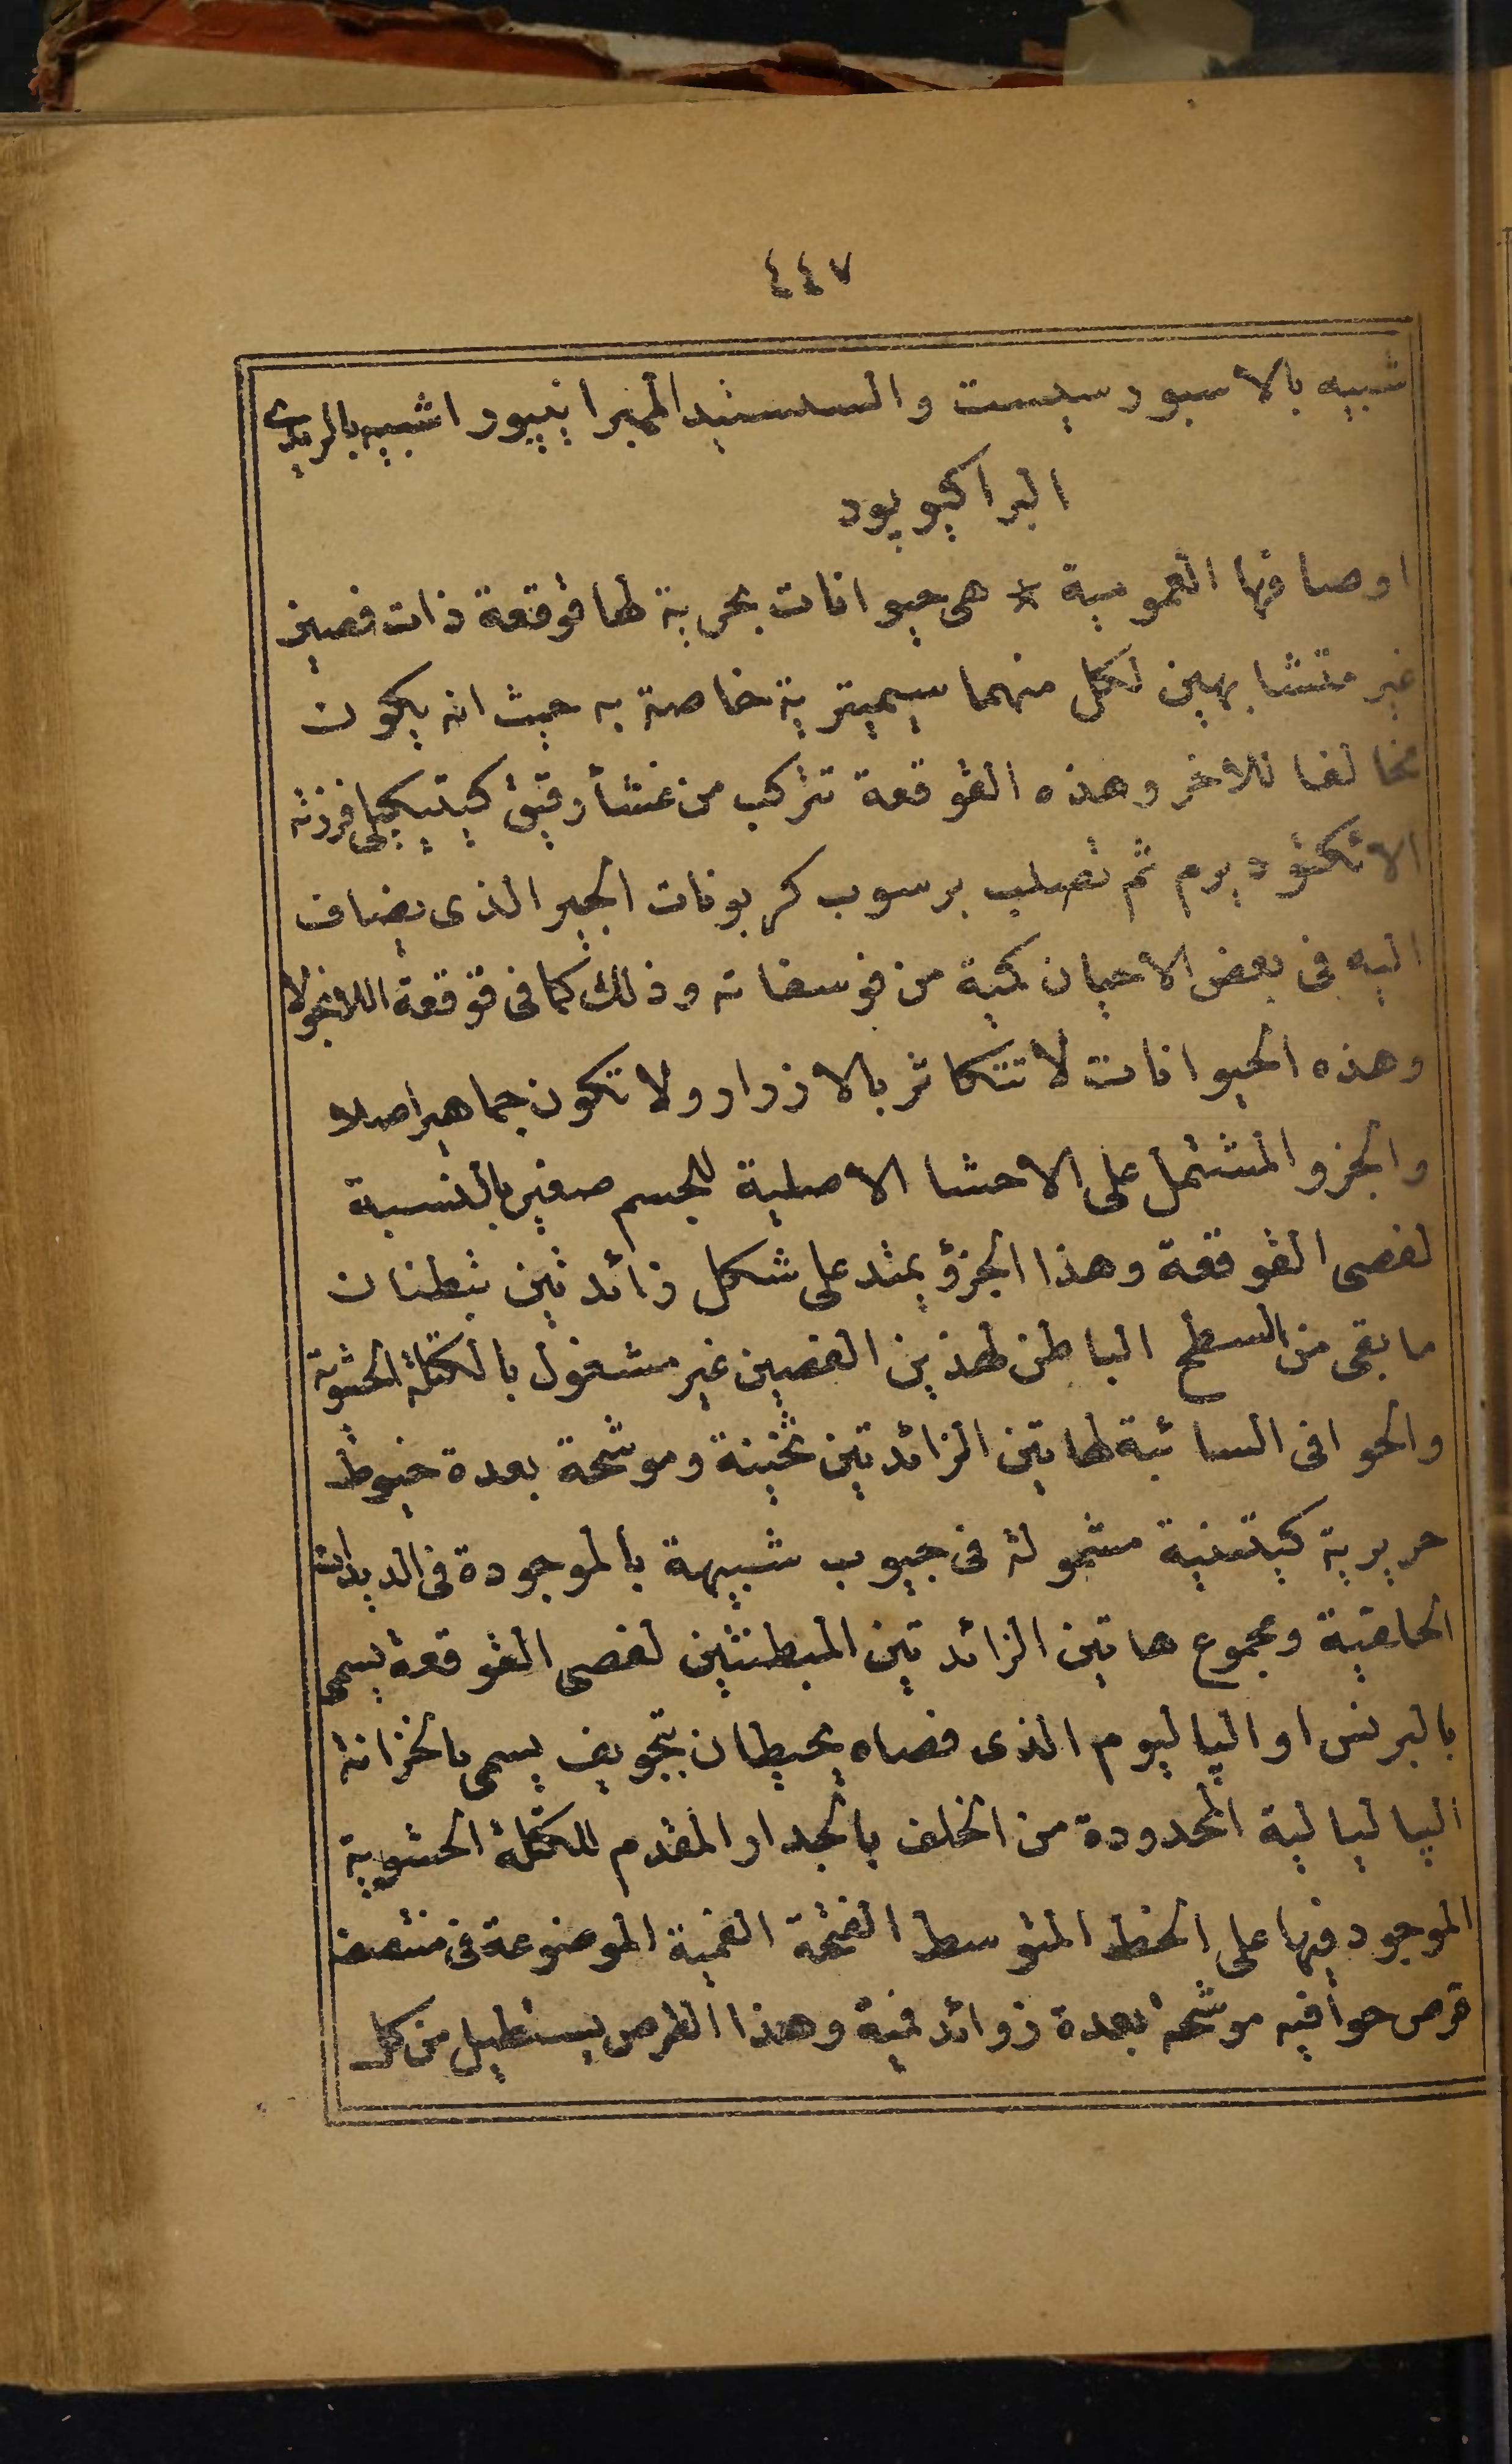 ٤٤٧
شبيه بالاسبورسيست والسستيد الممبرانيپورا شبيه بالريدى
البراكيوپود
اوصافها العمومية * هى حيوانات بحرية لها قوقعة ذات فصين
غير متشابهين لكل منهما سيميترية خاصة به حيث انه يكون
مخالفا للاخر وهذه القوقعة تتركب من غشأ رقيق كيتيكيلى افرزته
الاتكتوديرم ثم تصلب برسوب كربونات الجير الذى يضاف
اليه فى بعض الاحيان كمية من فوسفاته وذلك كما فى قوقعة اللانجولا
وهذه الحيوانات لا تتكاثر بالازرار ولا تكون جماهير اصلا
والجزو المشتمل على الاحشا الاصلية للجسم صغير بالنسبة
لفصى القوقعة وهذا الجزؤ يمتد على شكل زائدتين تبطنان
ما بقى من السطح الباطن لهذين الفصين غير مشغول بالكتلة الحشوية
والحوافى السائبة لهاتين الزائدتين ثخينة وموشحة بعدة خيوط
حريرية كيتينية مشمولة فى جيوب شبيهة بالموجودة فى الديدان
الحلقية ومجموع هاتين الزائدتين المبطنتين لفصى القوقعة يسمى
بالبرنس او الپاليوم الذى فصاه يحيطان بتجويف يسمى بالخزانة
الپاليالية المحدودة من الخلف بالجدار المقدم للكتلة الحشوية
الموجود فيها على الخط المتوسط الفتحة الفمية الموضوعة فى منتصف
قرص حوافيه موشحة بعدة زوائد فمية وهذا القرص يستطيل من كل